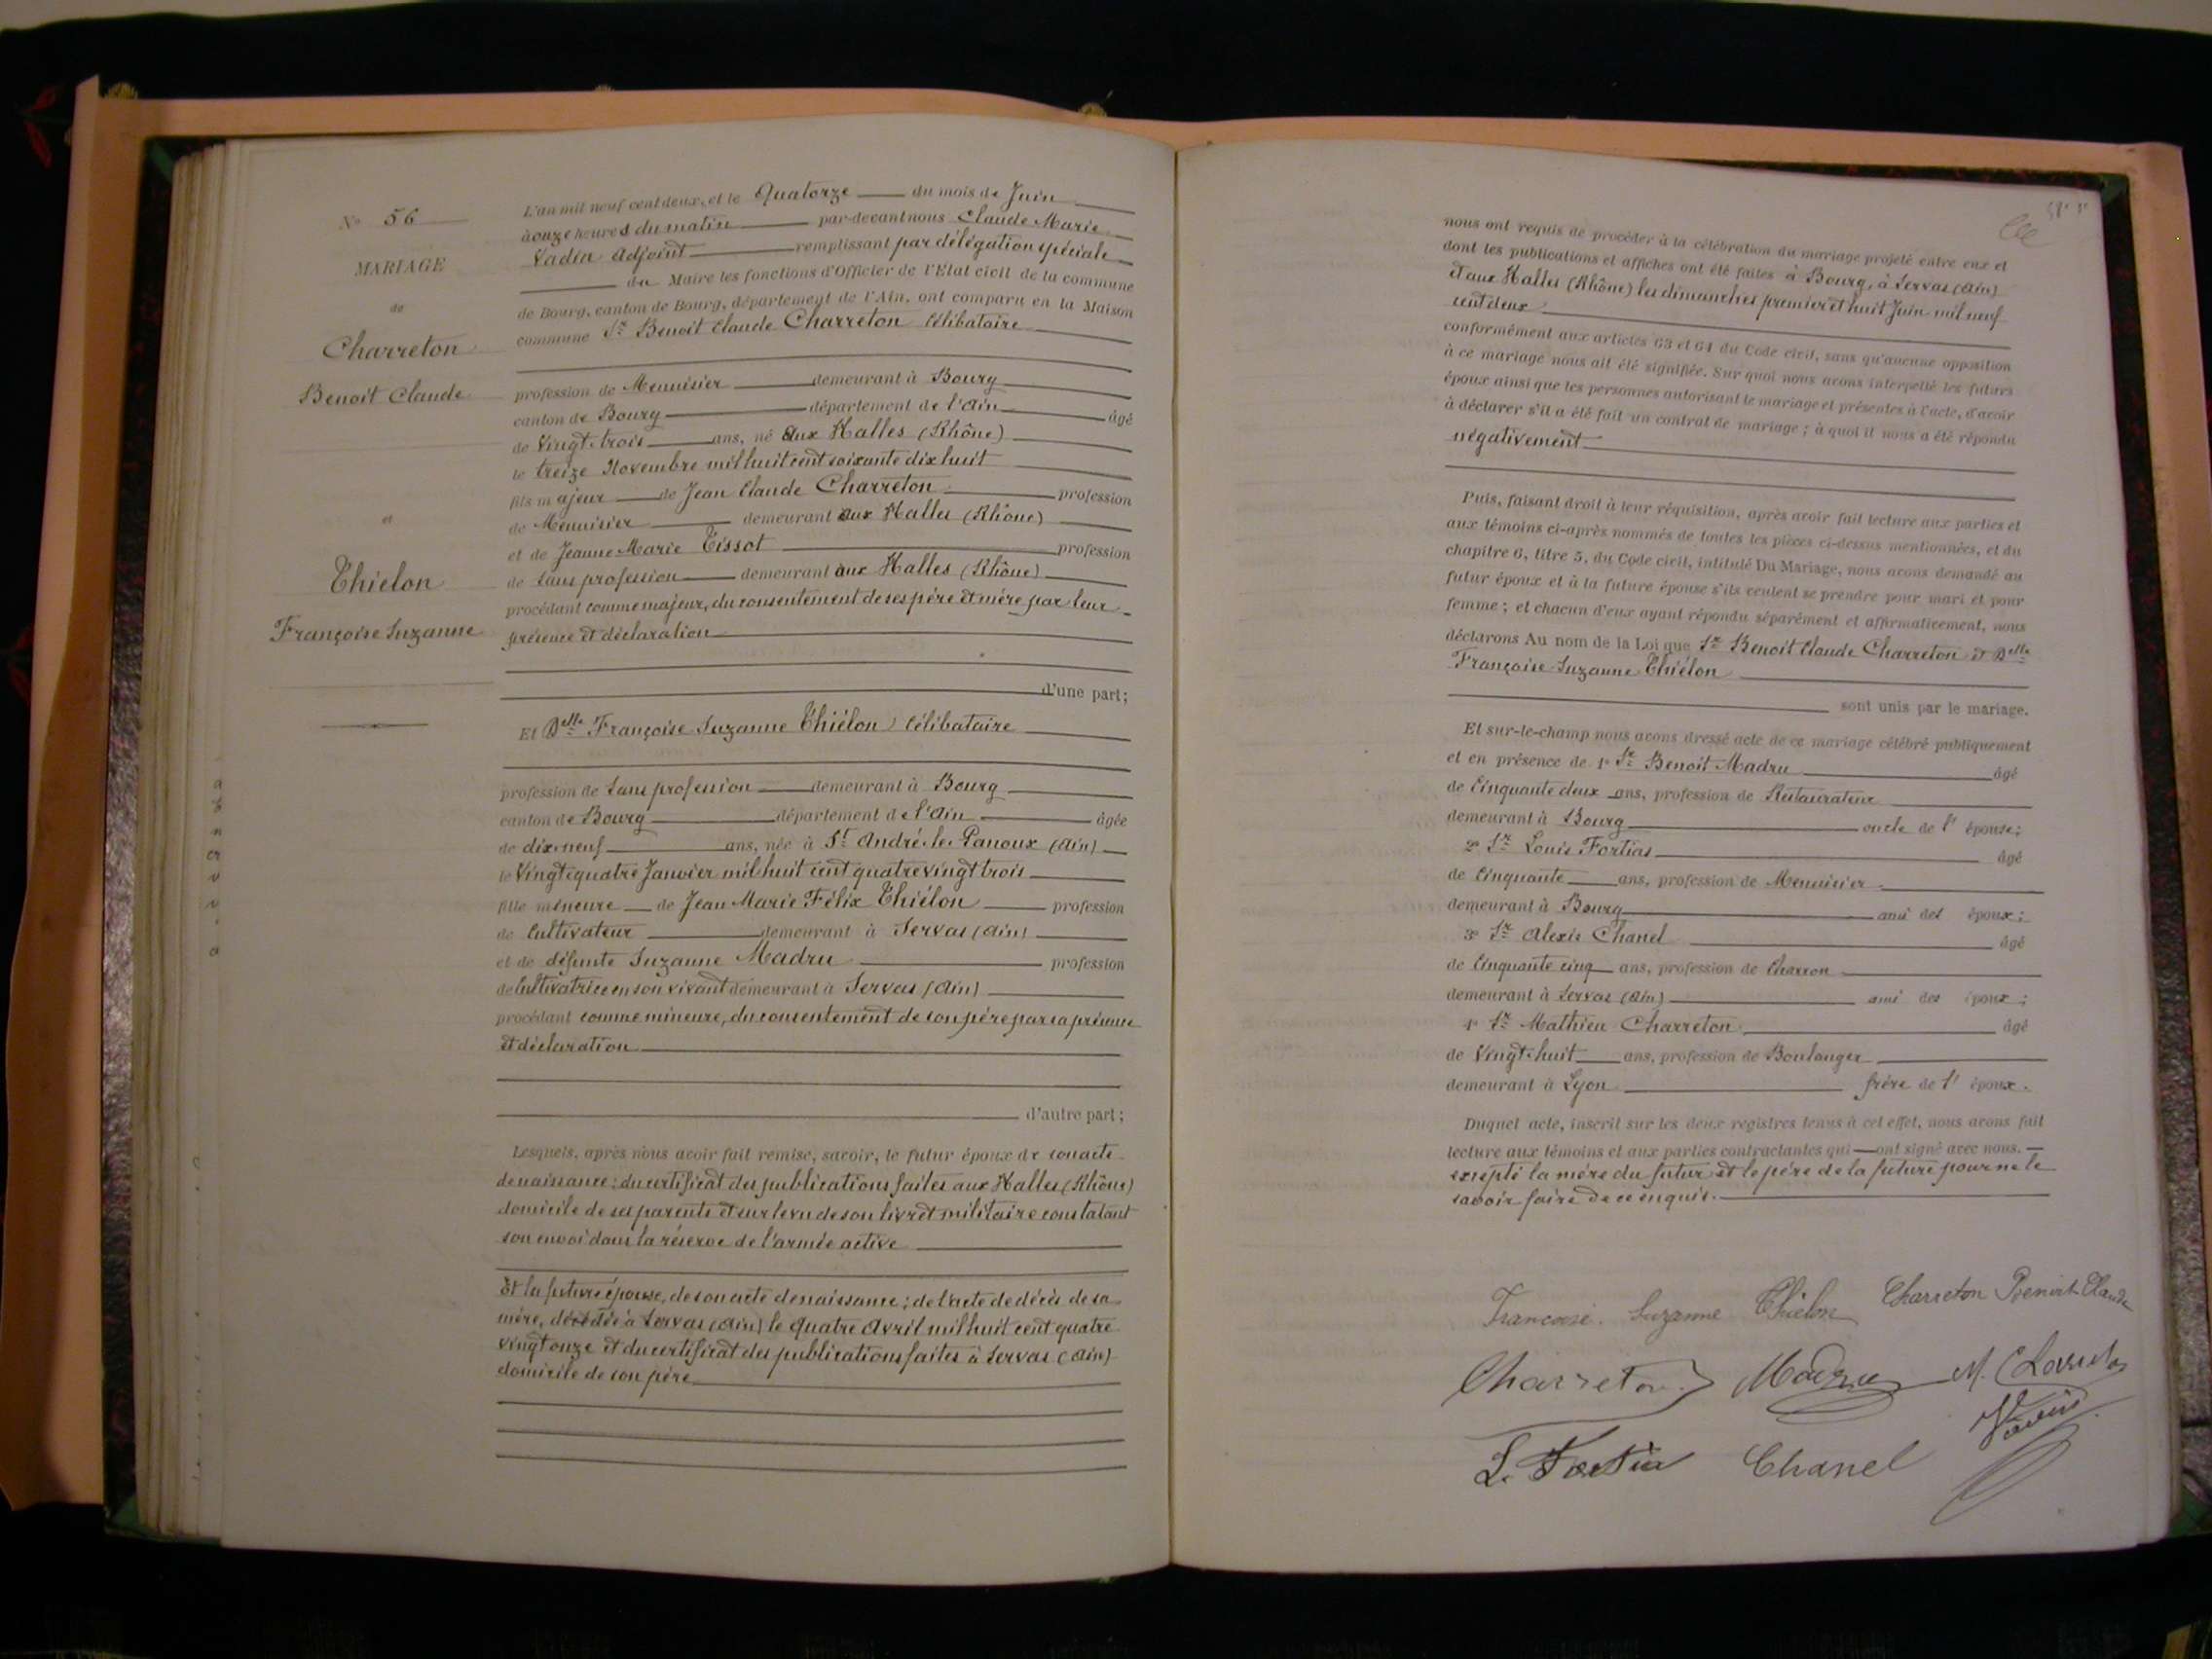 N° 56
MARIAGE
de
Charreton
Benoit Claude
et
Thiélon
Françoise Suzanne
L'an mil neuf cent deux, et le Quatorze du mois de Juin
à onze heures du matin par-devant nous Claude Marie
Vadin Adjoint remplissant par délégation spéciale
du Maire les fonctions d'Officier de l'Etat civil de la commune
de Bourg, canton de Bourg, département de l'Ain, ont comparu en la Maison
commune Sr Benoit Claude Charreton Célibataire
profession de Menuisier demeurant à Bourg
canton de Bourg département de l'Ain âgé
de Vingt-trois ans, né Aux Halles (Rhône)
le treize Novembre mil huit cent soixante dix huit
fils majeur de Jean Claude Charreton profession
de Menuisier demeurant aux Halles (Rhône)
et de Jeanne Marie Tissot profession
de Sans profession demeurant aux Halles (Rhône)
procédant comme majeur, du consentement de ses père et mère par leur
présence et déclaration
d'une part;
Et Delle Françoise Suzanne Thiélon Célibataire
profession de Sans profession demeurant à Bourg
canton de Bourg département de l'Ain âgée
de dix-neuf ans, née à St André-le-Panoux (Ain)
le Vingt quatre Janvier mil huit cent quatre vingt trois
fille mineure de Jean Marie Félix Thiélon profession
de Cultivateur demeurant à Servas (Ain)
et de défunte Suzanne Madru profession
de Cultivatrice en son vivant demeurant à Servas (Ain)
procédant comme mineure, du consentement de son père par sa présence
et déclaration
d'autre part;
Lesquels, après nous avoir fait remise, savoir, le futur époux de son acte
de naissance; du certificat des publications faites aux Halles (Rhône)
domicile de ses parents et sur le vu de son livret militaire constatant
son envoi dans la réserve de l'armée active
Et la future épouse, de son acte de naissance; de l'acte de décès de sa
mère, décédée à Servas (Ain) le quatre Avril mil huit cent quatre
vingt onze et du certificat des publications faites à Servas (Ain)
domicile de son père
nous ont requis de procéder à la célébration du mariage projeté entre eux et
dont les publications et affiches ont été faites à Bourg, à Servas (Ain)
et aux Halles (Rhône) les dimanches premier et huit Juin mil neuf
cent deux
conformément aux articles 63 et 64 du Code civil, sans qu'aucune opposition
à ce mariage nous ait été signifiée. Sur quoi nous avons interpellé les futurs
époux ainsi que les personnes autorisant le mariage et présentes à l'acte, d'avoir
à déclarer s'il a été fait un contrat de mariage; à quoi il nous a été répondu
négativement
Puis, faisant droit à leur réquisition, après avoir fait lecture aux parties et
aux témoins ci-après nommés de toutes les pièces ci-dessus mentionnées, et du
chapitre 6, titre 5, du Code civil, intitulé Du Mariage, nous avons demandé au
futur époux et à la future épouse s'ils veulent se prendre pour mari et pour
femme; et chacun d'eux ayant répondu séparément et affirmativement, nous
déclarons Au nom de la Loi que Sr Benoit Claude Charreton et Delle
Françoise Suzanne Thiélon
sont unis par le mariage.
Et sur-le-champ nous avons dressé acte de ce mariage célébré publiquement
et en présence de 1° Sr Benoit Madru âgé
de Cinquante deux ans, profession de Restaurateur
demeurant à Bourg oncle de l'épouse;
2° Sr Louis Fortias âgé
de Cinquante ans, profession de Menuisier
demeurant à Bourg ami des époux;
3° Sr Alexis Chanel âgé
de Cinquante cinq ans, profession de Charron
demeurant à Servas (Ain) ami des époux;
4° Sr Mathieu Charreton âgé
de Vingt-huit ans, profession de Boulanger
demeurant à Lyon frère de l'époux.
Duquel acte, inscrit sur les deux registres tenus à cet effet, nous avons fait
lecture aux témoins et aux parties contractantes qui ont signé avec nous.
excepté la mère du futur et le père de la future pour ne le
savoir faire de ce enquis.
Francoise Suzanne Thielon Charreton Benoit Claude
Charreton Madru M. Charreton
L. Fortia Chanel Vadin